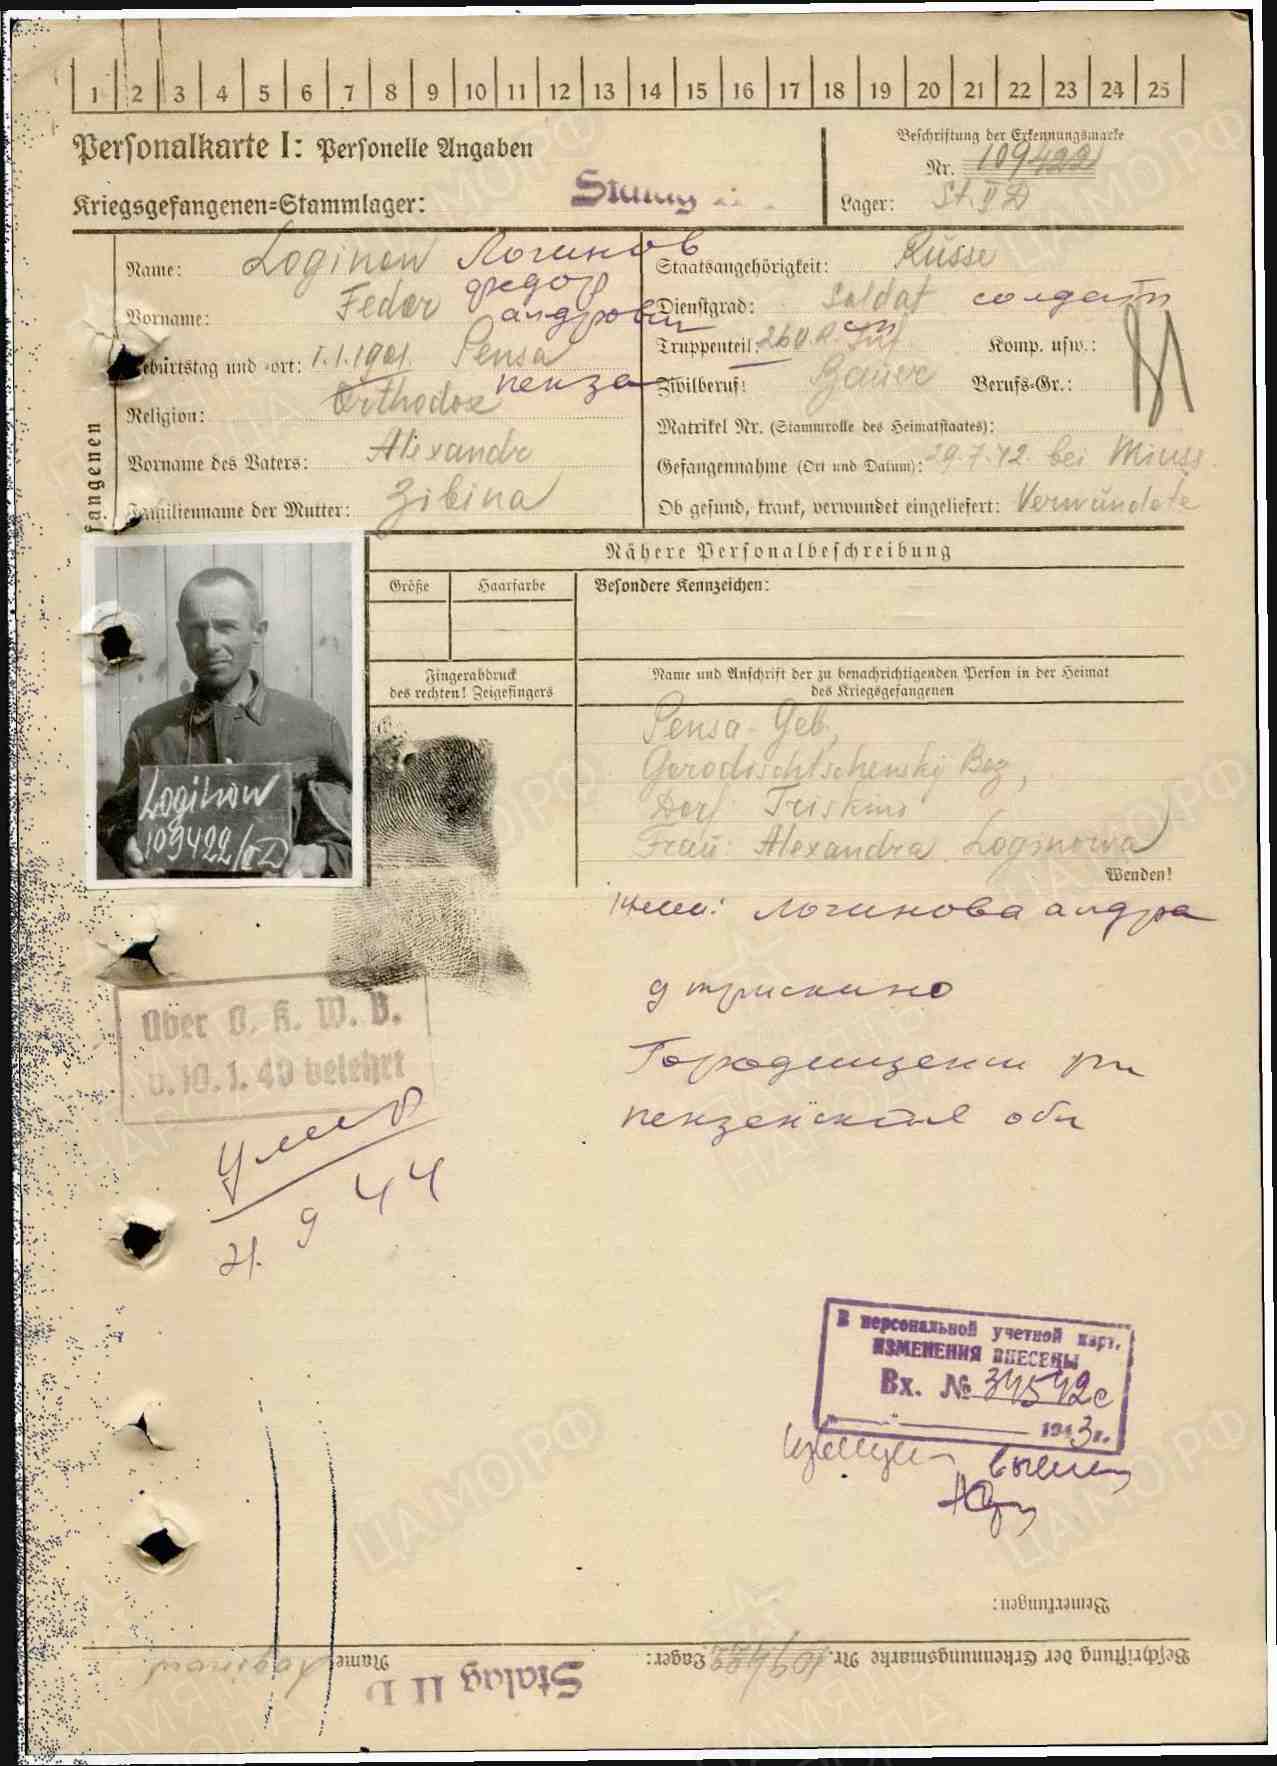 1 2 3 4 5 6 7 8 9 10 11 12 13 14 15 16 17 18 19 20 21 22 23 24 25
Personalkarte I: Personelle Angaben
Beschriftung der Erkennungsmarke
Nr. 109422
Kriegsgefangenen=Stammlager: Stalag
Lager: St. II D
Name: Loginow Логинов
Staatsangehörigkeit: Russe
Vorname: Fedor Федор
алдрович
Dienstgrad: Soldat солдат
Geburtstag und -ort: 1.1.1901. Pensa
пенза
Truppenteil: 260 Komp. usw.:
Religion: Orthodox
Zivilberuf: Bauer Berufs-Gr.:
Matrikel Nr. (Stammrolle des Heimatstaates):
Vorname des Vaters: Alexandr
Gefangennahme (Ort und Datum): 29.7.42. bei Miuss
Familienname der Mutter: Zibina
Ob gesund, krank, verwundet eingeliefert: Verwundete
fangenen
Nähere Personalbeschreibung
Größe Haarfarbe Besondere Kennzeichen:
Fingerabdruck
des rechten! Zeigefingers
Name und Anschrift der zu benachrichtigenden Person in der Heimat
des Kriegsgefangenen
Pensa-Geb,
Gorodischtschenskij Bez,
Dorf Triskino
Frau Alexandra Loginowa
Wenden!
Loginow
109422/II D
Логинова алдра
д трискино
Городищенск рн
пензенская обл
Über O. K. W. B.
v. 10. 1. 40 belehrt
умер
21. 9 44
В персональной учетной карт.
ИЗМЕНЕНИЯ ВНЕСЕНЫ
Вх. № 34542с
1943г.
Bemerkungen:
Beschriftung der Erkennungsmarke Nr. 109422 Lager: Stalag II D Name Loginow
ЦАМО.РФ